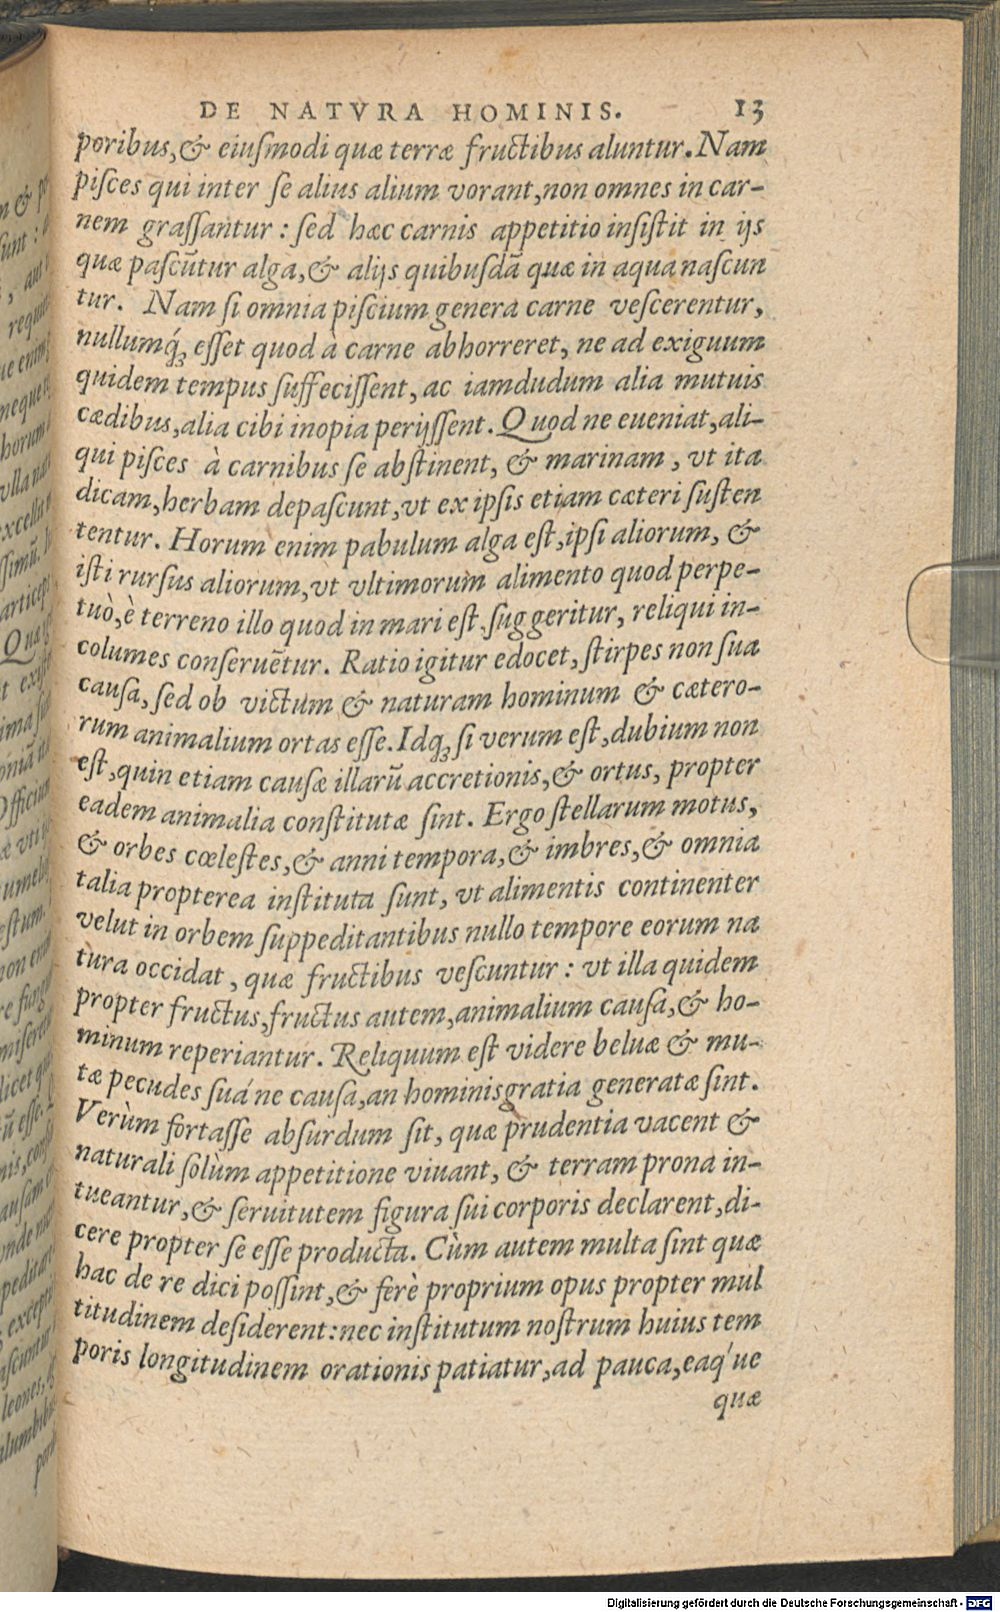 DE NATVRA HOMINIS. 13
poribus,& eiuſmodi quæ terræ fructibus aluntur. Nam
piſces qui inter ſe alius alium vorant,non omnes in car-
nem graſſantur : ſed hæc carnis appetitio inſiſtit in ijs
quæ paſcũtur alga,& alijs quibuſdã quæ in aqua naſcun
tur. Nam ſi omnia piſcium genera carne veſcerentur,
nullumq́ꝫ eſſet quod à carne abhorreret, ne ad exiguum
quidem tempus ſuffeciſſent, ac iamdudum alia mutuis
cædibus,alia cibi inopia perijſſent. Quod ne eueniat,ali-
qui piſces à carnibus ſe abſtinent, & marinam , vt ita
dicam,herbam depaſcunt,vt ex ipſis etiam cæteri ſuſten
tentur. Horum enim pabulum alga eſt,ipſi aliorum, &
iſti rurſus aliorum,vt vltimorum alimento quod perpe-
tuò,è terreno illo quod in mari eſt,ſuggeritur, reliqui in-
columes conſeruẽtur. Ratio igitur edocet, ſtirpes non ſua
cauſa, ſed ob victum & naturam hominum & cætero-
rum animalium ortas eſſe. Idqꝫ ſi verum eſt,dubium non
eſt,quin etiam cauſæ illarũ accretionis,& ortus, propter
eadem animalia conſtitutæ ſint. Ergo ſtellarum motus,
& orbes cœleſtes,& anni tempora,& imbres,& omnia
talia propterea inſtituta ſunt, vt alimentis continenter
velut in orbem ſuppeditantibus nullo tempore eorum na
tura occidat , quæ fructibus veſcuntur : vt illa quidem
propter fructus,fructus autem,animalium cauſa,& ho-
minum reperiantur. Reliquum eſt videre beluæ & mu-
tæ pecudes ſuá ne cauſa,an hominis gratia generatæ ſint.
Verùm fortaſſe abſurdum ſit, quæ prudentia vacent &
naturali ſolùm appetitione viuant, & terram prona in-
tueantur,& ſeruitutem figura ſui corporis declarent,di-
cere propter ſe eſſe producta. Cùm autem multa ſint quæ
hac de re dici poſſint,& ferè proprium opus propter mul
titudinem deſiderent:nec inſtitutum noſtrum huius tem
poris longitudinem orationis patiatur,ad pauca,eaq́ue
quæ
Digitalisierung gefördert durch die Deutsche Forschungsgemeinschaft - DFG